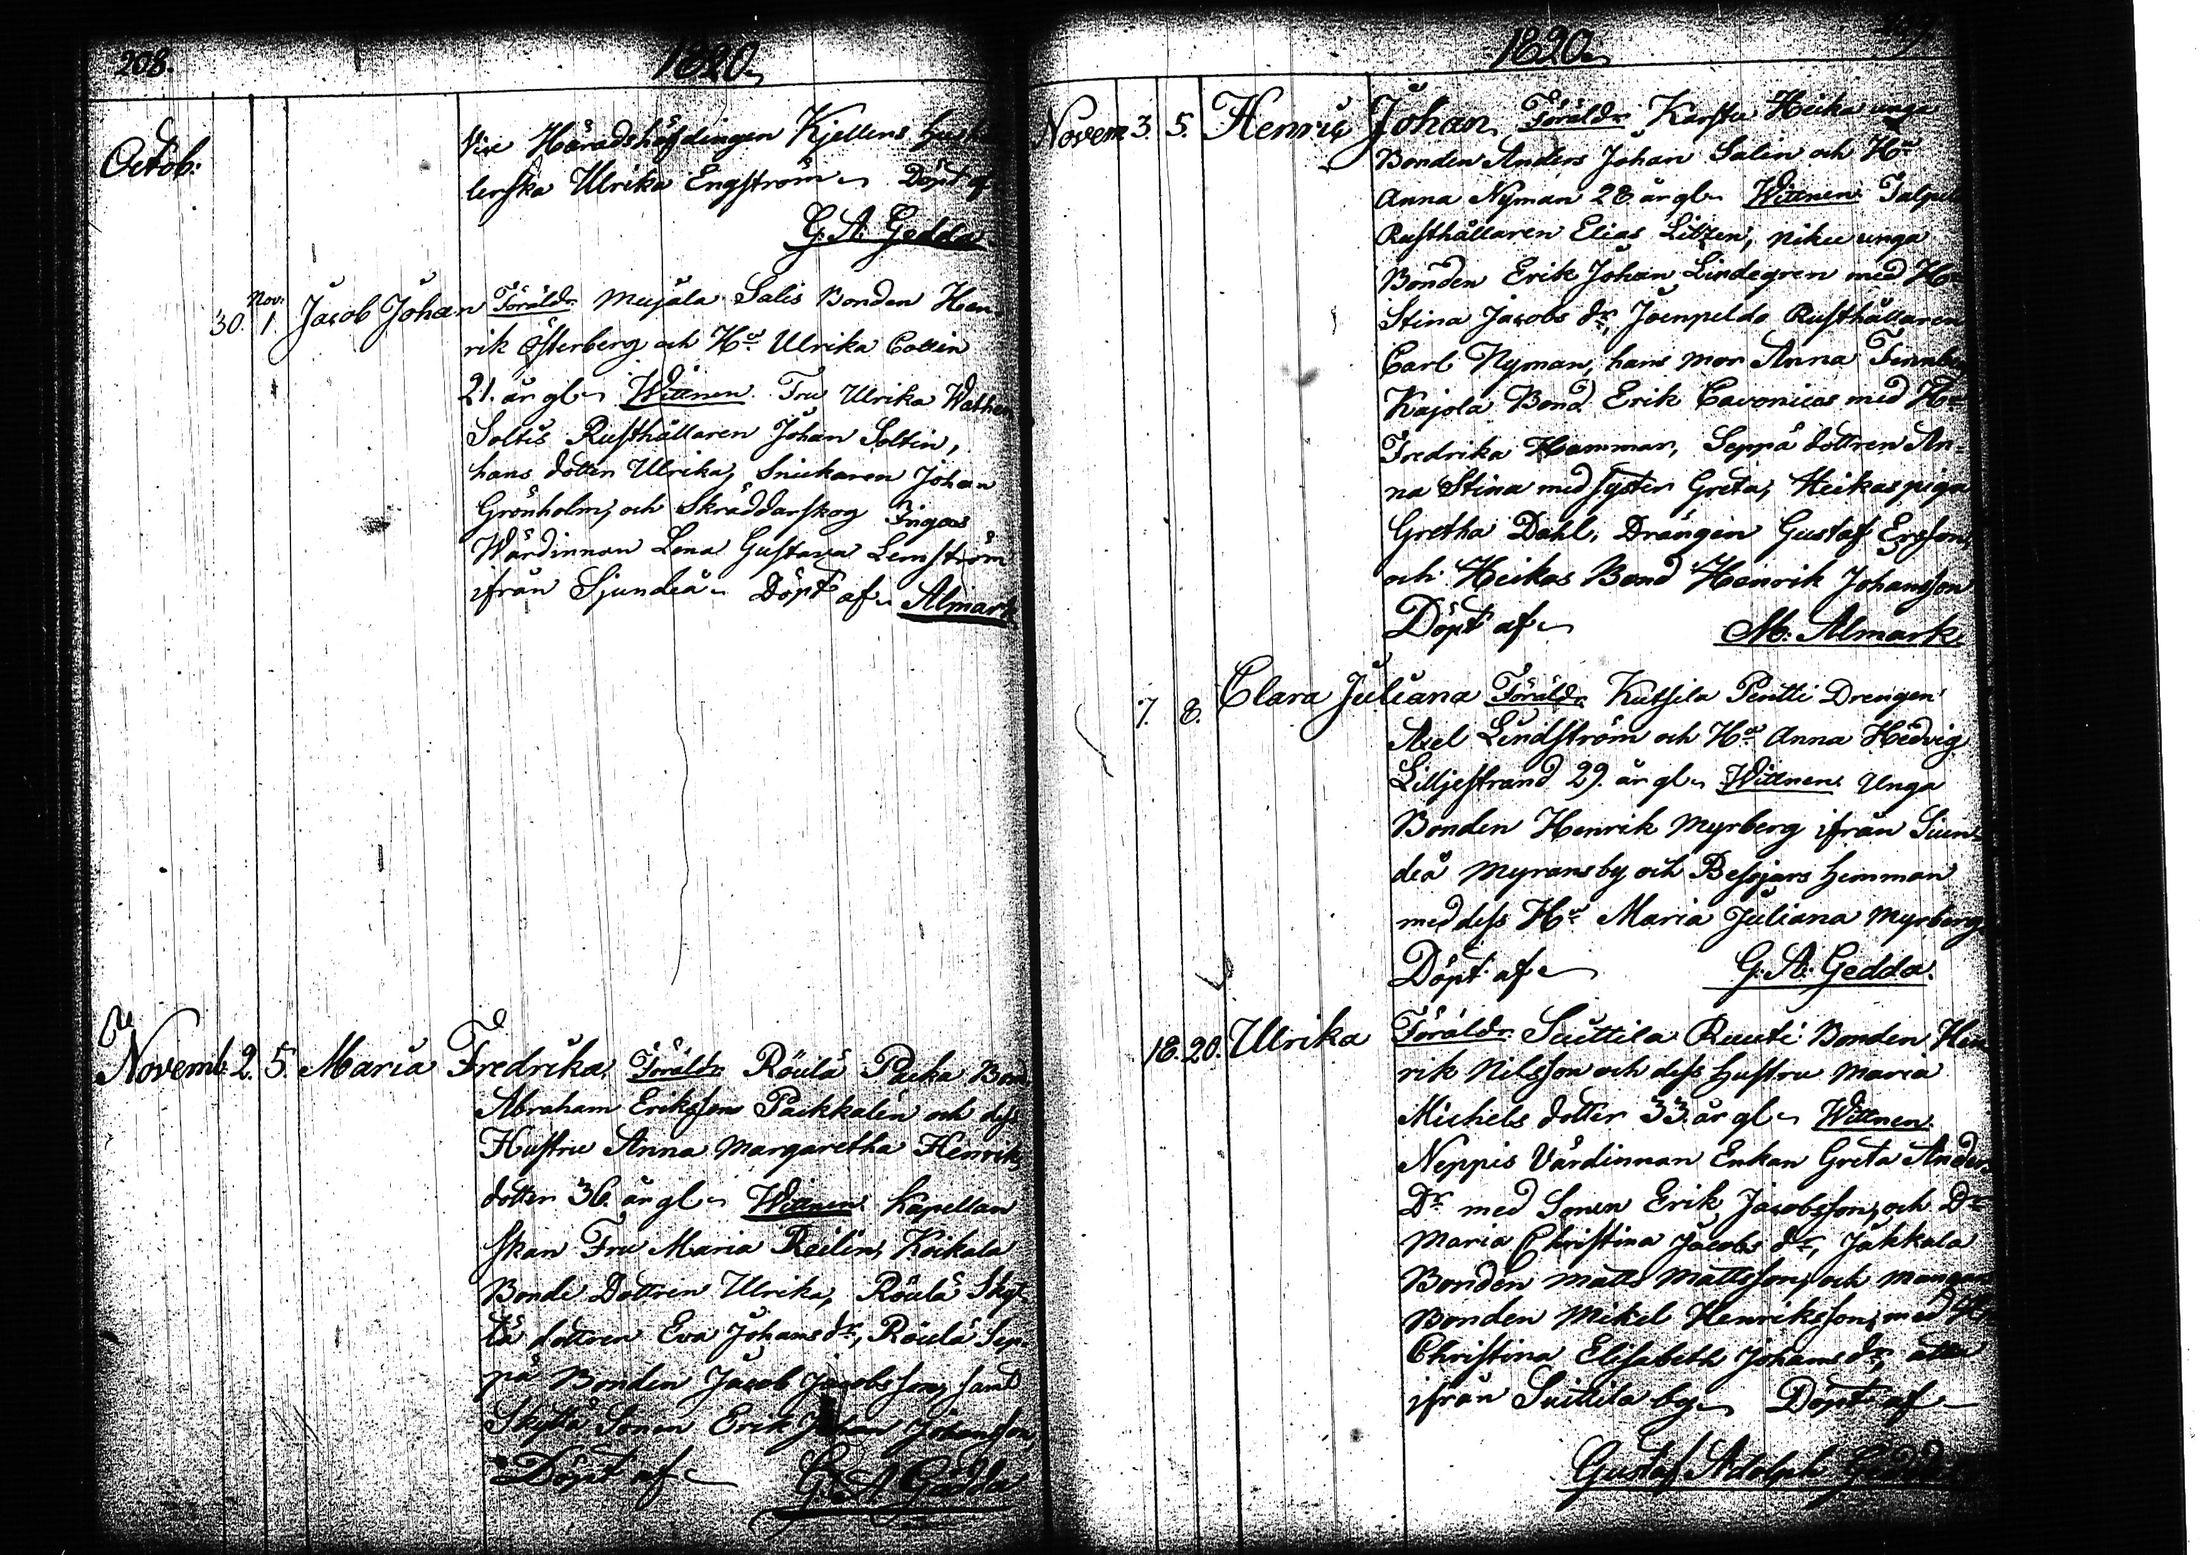 208.
1820
Octob:
Vice Häradshöfdingen Kjellens Hus
lerska Ulrika Engström Döpt af
G. A. Gedda
30. Nov: 1. Jacob Johan Föräldr Meijala Salis Bonden Hen
rik Österberg och Hu Ulrika Collin
21. år gl Wittnen. Fru Ulrika Wathen
Soltis Rusthållaren Johan Soltin,
hans dotter Ulrika, Snickaren Johan
Grönholm, och Skräddarskog Ingoas
Wärdinnan Lena Gustava Lemström
ifrån Sjundeå Döpt af Almark
Novemb. 2. 5. Maria Fredrika. Föräldr Röulä Packa Bon
Abraham Eriksson Packkalén och dess
Hustru Anna Margaretha Henriks
dotter 36. år gl Wittnen. Kapellan
skan Fru Maria Reilin, Koikala
Bonde Dottren Ulrika, Röulä Skyt
tä dottren Eva Johans dr, Röulä Sep
pä Bonden Jacob Jacobsson, samt
Skyttä Sonen Erik Johan Johansson,
Döpt af G. A. Gedda
1820
Novem 3. 5. Henric Johan, Föräldr Karstu Heika unga
Bonden Anders Johan Salin och Hu
Anna Nyman 28 år gl Wittnen.
Rusthållaren Elias Litzen, unga
Bonden Erik Johan Lindegren med Hu
Stina Jacobs dr, Joenpeldo Rusthållaren
Carl Nyman, hans mor Anna
Kajola Bond Erik Cavonius med Hu
Fredrika Hammar, Seppä dottren An=
na Stina med syster Greta, Heikas piga
Gretha Dahl, Drängen Gustaf Ersson,
och Heikas Bond Heinrik Johansson
Döpt af M. Almark
7. 8. Clara Juliana Föräldr Kutsila Pentti Drengen
Axel Lindström och Hu Anna Hedvig
Lilljestrand 29. år gl Wittnen. Unga
Bonden Henrik Myrberg ifrån Siun
deå Myransby och Bessjars hemman
med dess Hu Maria Juliana Myrberg
Döpt af G. A. Gedda.
18. 20. Ulrika Föräldr Suittila Ruuti Bonden Hen
rik Nilsson och dess hustru Maria
Michels dotter 33. år gl Wittnen.
Neppis Värdinnan Enkan Greta Anders
Dr med Sonen Erik Jacobsson, och Dr
Maria Christina Jacobs dr, Jäkkala
Bonden Matts Mattsson, och
Bonden Mikel Henriksson, med Hu
Christina Elisabeth Johans dr, alla
ifrån Suittila by Döpt af
Gustaf Adolph Gedda